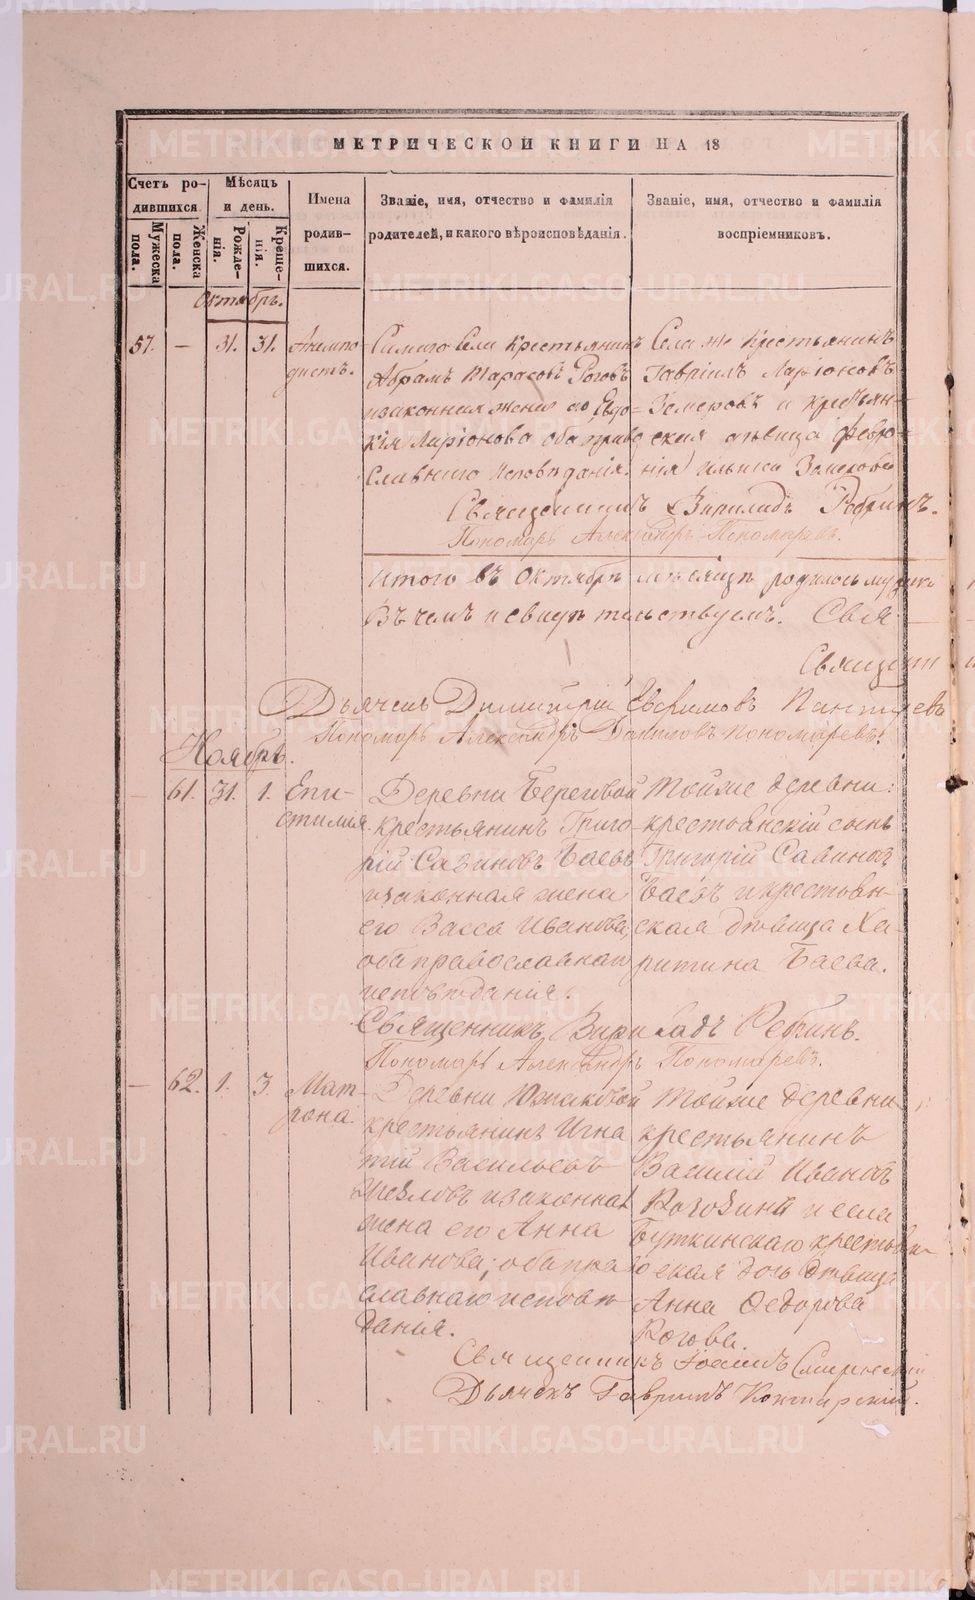 МЕТРИЧЕСКОЙ КНИГИ НА 18
Счетъ ро-
дившихся.
Мѣсяцъ
и день.
Имена
родив-
шихся.
Званіе, имя, отчество и фамилія
родителей, и какого вѣроисповѣданія.
Званіе, имя, отчество и фамилія
воспріемниковъ.
Мужеска
пола.
Женска
пола.
Рожде-
нія.
Креще-
нія.
Октябрь.
57. — 31. 31.
Анемпо-
дистъ.
Самаго Села Крестьянинъ
Абрамъ Тарасовъ Роговъ
и законная жена его Евдо-
кія Ларіонова оба право
Славнаго исповѣданія.
Села же Крестьянинъ
Гавріилъ Ларіоновъ
и крестьян-
ская дѣвица Февро-
нія
Священникъ Вириладъ Рѣбинъ.
Пономарь Александръ Пономаревъ.
Итого въ Октябрѣ мѣсяцѣ родилось муж
Въ чемъ и свидѣтельствуемъ. Свя
Священ
Дьячекъ Димитрій Евфимовъ
Пономарь Александръ Даниловъ Пономаревъ.
Ноябрь.
— 61. 31. 1.
Епи-
стимия.
Деревни Береговой
крестьянинъ Григо-
рій Савиновъ Баевъ
и законная жена
его Васса Иванова,
оба православнаго
исповѣданія.
Тойже деревни:
крестьянскій сынъ
Григорій Савиновъ
Баевъ и крестьян-
ская дѣвица Ха-
ритина Баева.
Священникъ Вириладъ Рѣбинъ.
Пономарь Александръ Пономаревъ.
— 62. 1. 3.
Мат-
рона.
Деревни Южаковой
крестьянинъ Игна
тій Васильевъ
и законная
жена его Анна
Иванова; оба пра
славнаго исповѣ
данія.
Тойже деревни
крестьянинъ
Василій Ивановъ
и села
Буткинскаго крестьян
ская дочь дѣвица
Анна Ѳедорова
Рогова.
Священникъ Іоаннъ
Дьячекъ Гавріилъ
METRIKI.GASO-URAL.RU